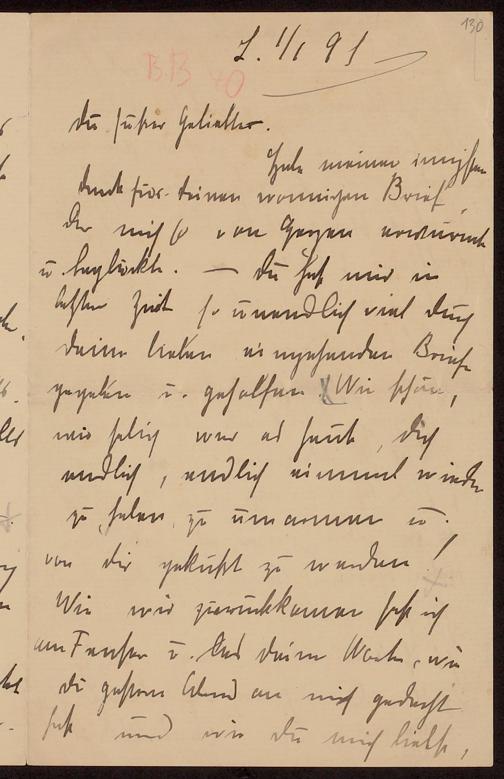 130
L. 1/1 91
BB 40
Du süßer Geliebter.
Habe meinen innigsten
Dank für deinen wonnigen Brief,
der mich so von Herzen erwärmte
u. beglückte. — Du hast mir in
letzter Zeit so unendlich viel durch
deine lieben eingehenden Briefe
gegeben u. geholfen! Wie schön,
wie selig war es heute, dich
endlich, endlich einmal wieder
zu haben, zu umarmen u.
von dir geküßt zu werden!
Wie wir zurückkamen saß ich
am Fenster u. las deine Worte, wie
du gestern Abend an mich gedacht
hast und wie du mich liebst,